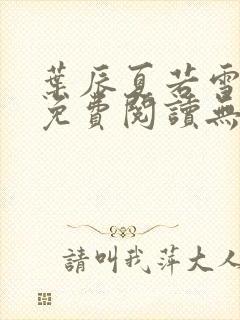 葉辰夏若雪
免費閱讀無
請叫我萍大人